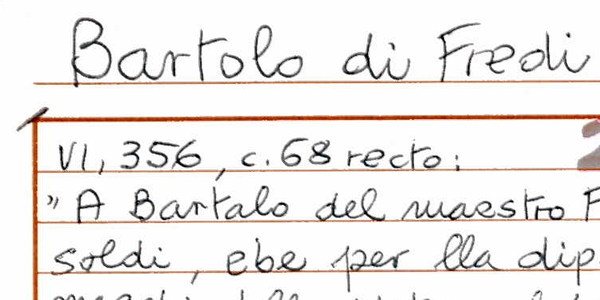 Bartolo di Fredi
VI, 356, c. 68 recto:
" A Bartalo del maestro F
soldi, ebe per lla dip